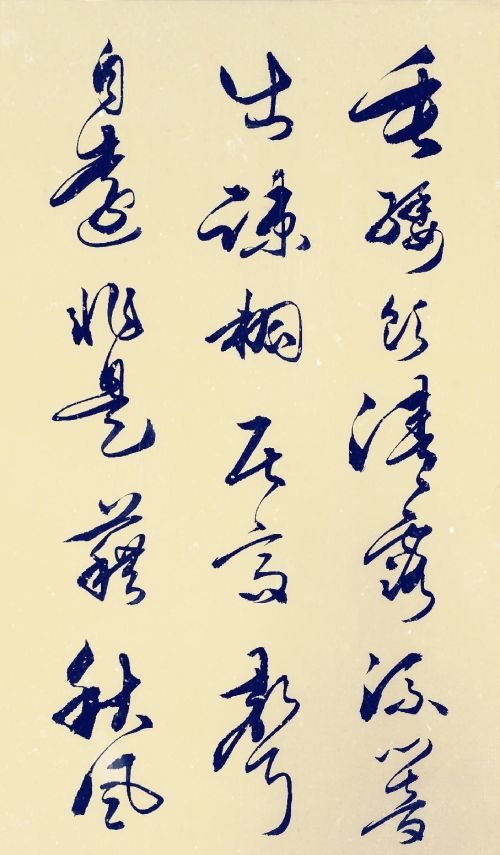 垂緌飲清露流響
出疎桐居高聲
自遠非是藉秋風